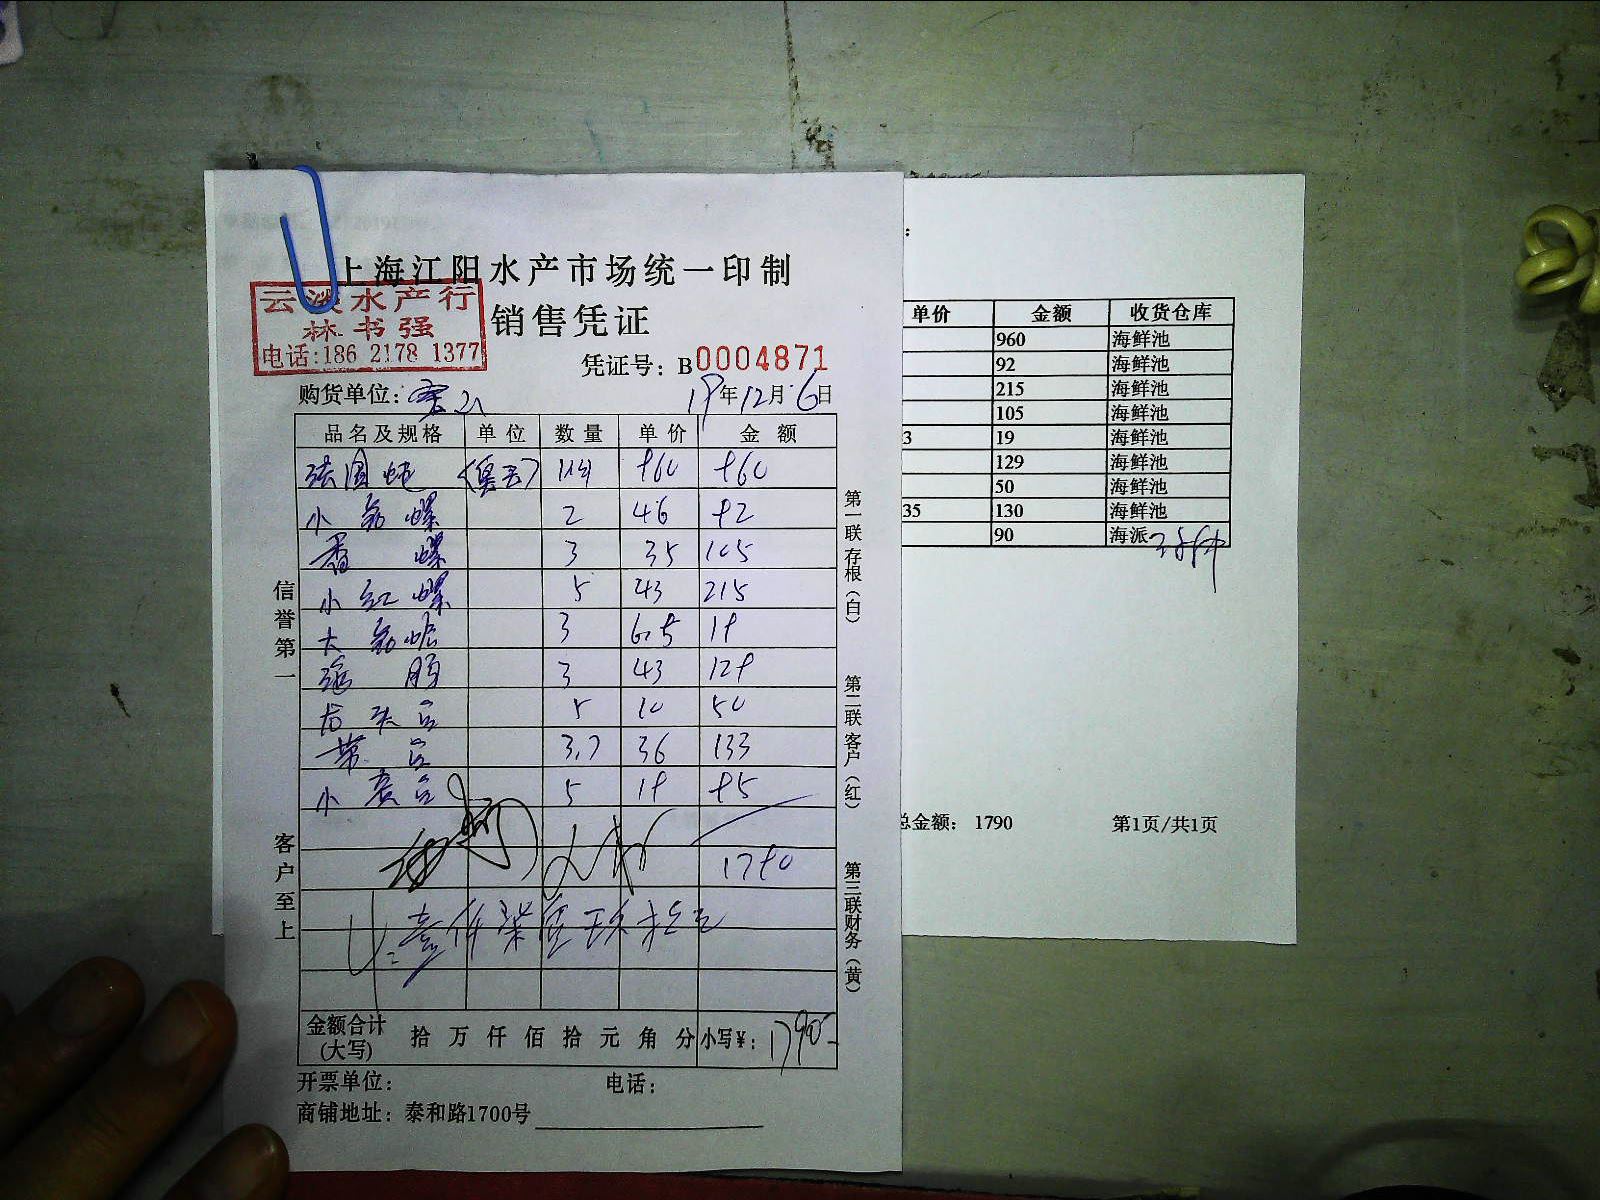 上海江阳水产市场统一印制
云淡水产行
林书强
电话:186 2178 1377
销售凭证
凭证号: B0004871
购货单位:
19年12月6日
品名及规格 单位 数量 单价 金额
法国 960 960
小 螺 2 46 92
香螺 3 35 105
小红螺 5 43 215
大 3 6.5 19
海肠 3 43 129
5 10 50
3.7 36 133
小 5 19 95
1790
壹仟柒佰玖拾元
金额合计(大写) 拾 万 仟 佰 拾 元 角 分 小写¥: 1790-
开票单位: 电话:
商铺地址: 泰和路1700号
信誉第一
客户至上
第一联存根(白)
第二联客户(红)
第三联财务(黄)
:
单价 金额 收货仓库
960 海鲜池
92 海鲜池
215 海鲜池
105 海鲜池
3 19 海鲜池
129 海鲜池
50 海鲜池
35 130 海鲜池
90 海派
总金额: 1790 第1页/共1页